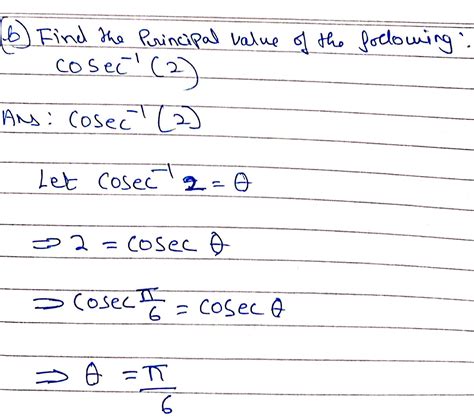 (b) Find the Principal value of the following:
cosec⁻¹ (2)
Ans: cosec⁻¹ (2)
Let cosec⁻¹ 2 = θ
⇒ 2 = cosec θ
⇒ cosec π/6 = cosec θ
⇒ θ = π/6